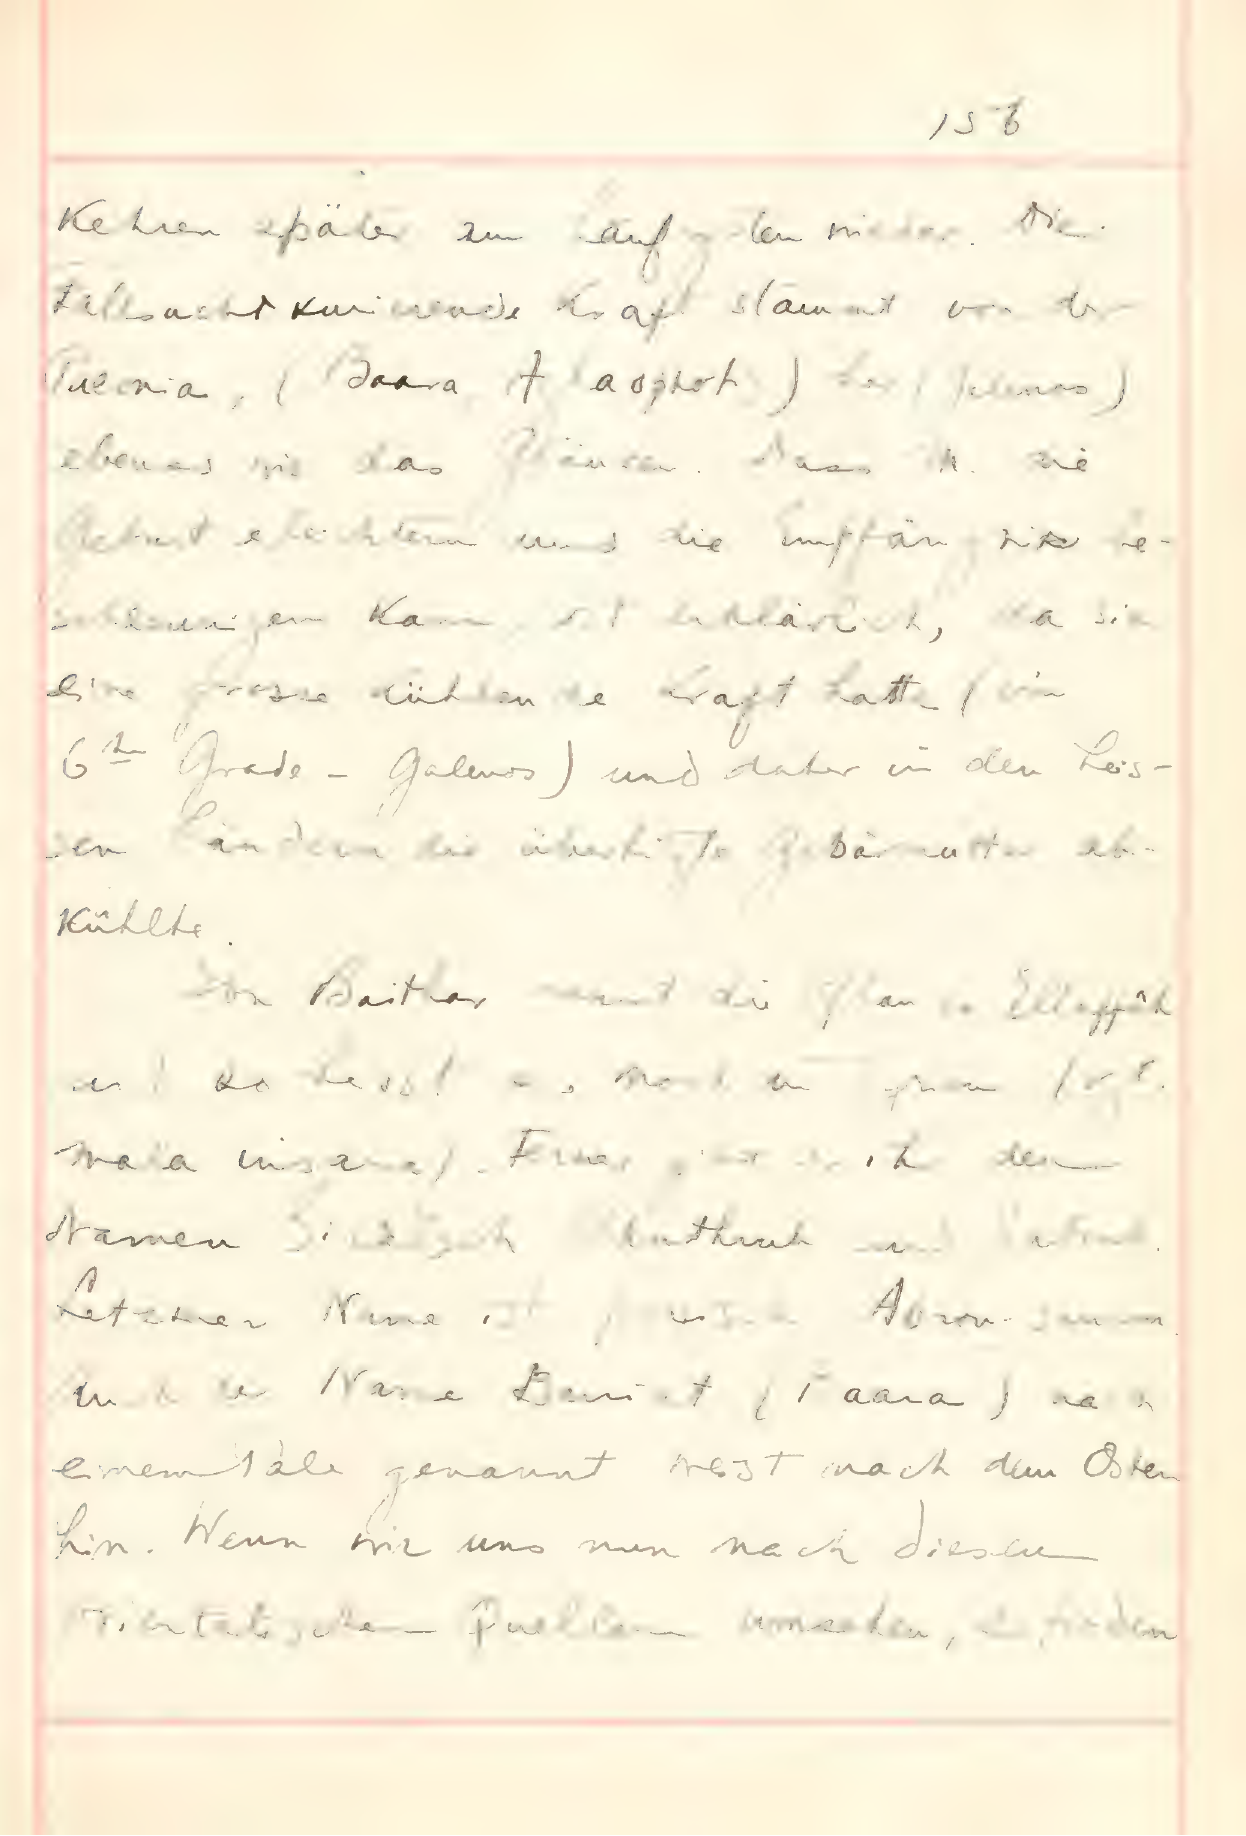 156
Kehren später am häufigsten wieder. Die
Fallsucht kurierende Kraft stammt von der
Paeonia, (Baara, Aglaophotis) her (Galenos)
ebenso wie das Glänzen. Dass M. die
Geburt erleichtern und die Empfängnis be-
schleunigen kann, ist erklärlich, da sie
eine grosse kühlende Kraft hatte (im
6ten Grade - Galenos) und daher in den heis-
sen Ländern die überhitzte Gebärmutter ab-
kühlte.
Ibn Baithar nennt die Pflanze Elloffâh
und so heisst es noch in (vgl.
mala insana). Ferner er ihr den
Namen und
Letzterer Name ist
Auch der Name (Baara) nach
einem Tale genannt weist nach dem Osten
hin. Wenn wir uns nun nach diesen
orientalischen Quellen umsehen, so finden